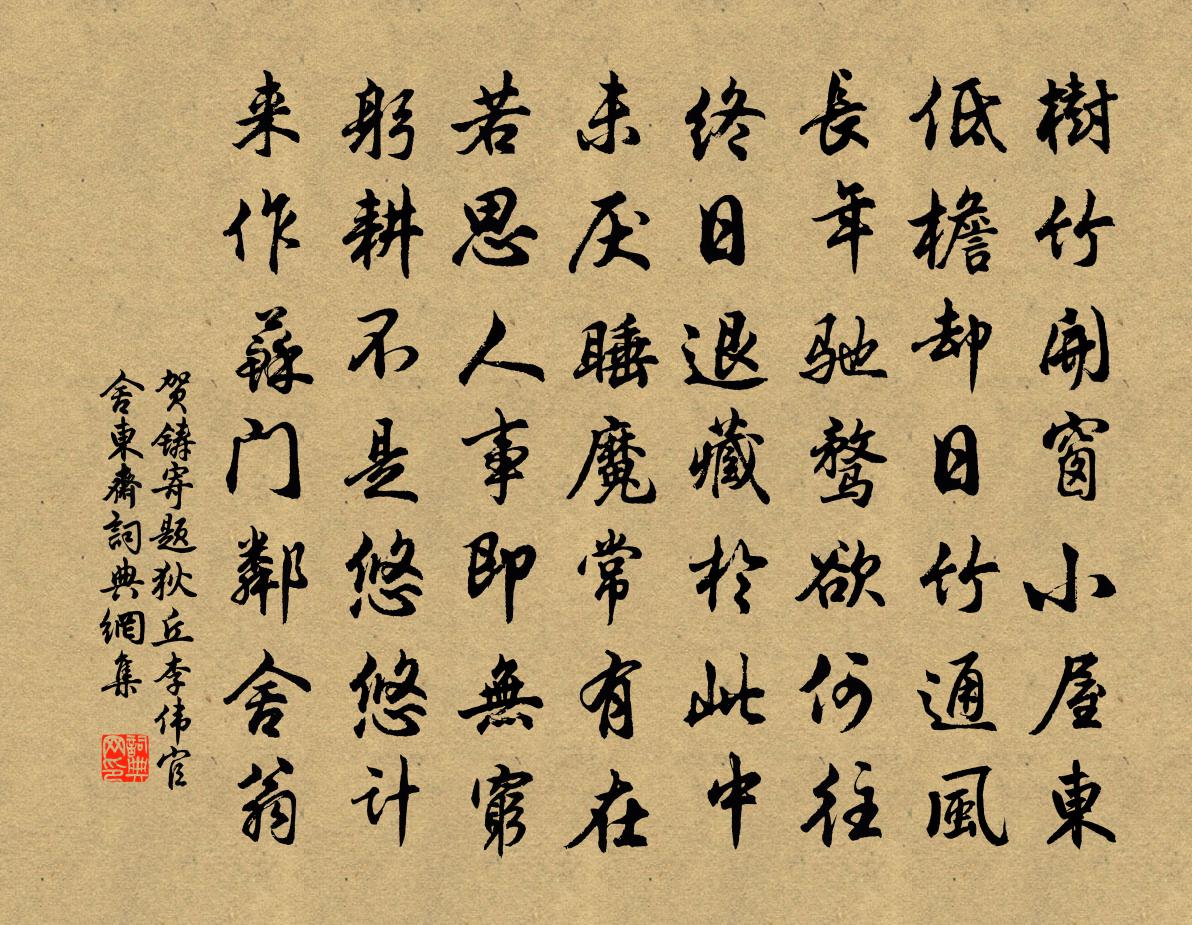 樹竹開窗小屋東
低檐却日竹通風
長年驰騖欲何往
終日退藏於此中
未厌睡魔常有在
若思人事即無窮
躬耕不是悠悠计
来作蘇门鄰舍翁
贺鑄寄题狄丘李伟官
舍東齋詞典網集
詞典网印